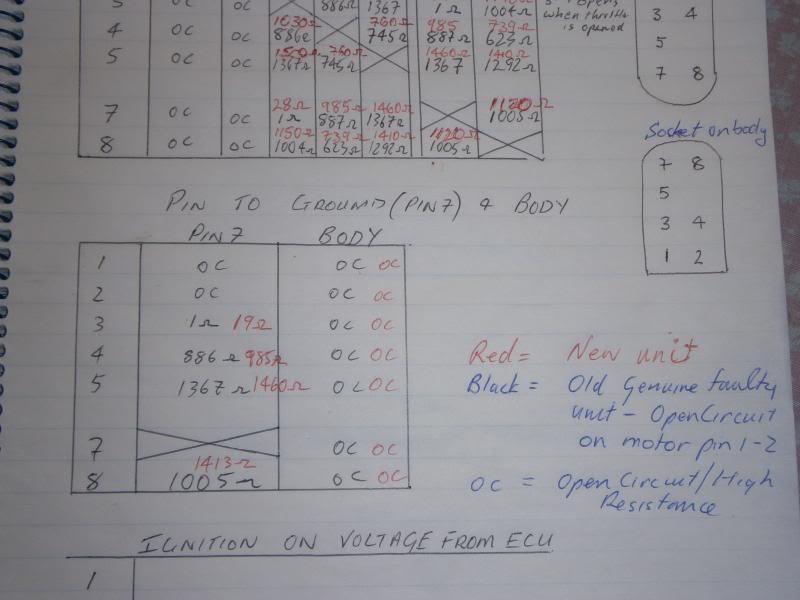 886Ω 1367 1Ω 1004Ω
when throttle
is opened
3 4
5
7 8
4 OC OC 1030Ω 886Ω 760Ω 745Ω 985 887Ω 739Ω 623Ω
5 OC OC 1500Ω 1367Ω 760Ω 745Ω 1460Ω 1367 1410Ω 1292Ω
7 OC OC 28Ω 1Ω 985Ω 887Ω 1460Ω 1367Ω 1120Ω 1005Ω
8 OC OC 1150Ω 1004Ω 739Ω 623Ω 1410Ω 1292Ω 1120Ω 1005Ω
Socket on body
7 8
5
3 4
1 2
PIN TO GROUND (PIN7) & BODY
PIN7 BODY
1 OC OC OC
2 OC OC OC
3 1Ω 19Ω OC OC
4 886Ω 985Ω OC OC
5 1367Ω 1460Ω OC OC
7 OC OC
8 1413Ω 1005Ω OC OC
Red = New unit
Black = Old Genuine faulty
unit - Open Circuit
on motor pin 1-2
OC = Open Circuit/High
Resistance
IGNITION ON VOLTAGE FROM ECU
1